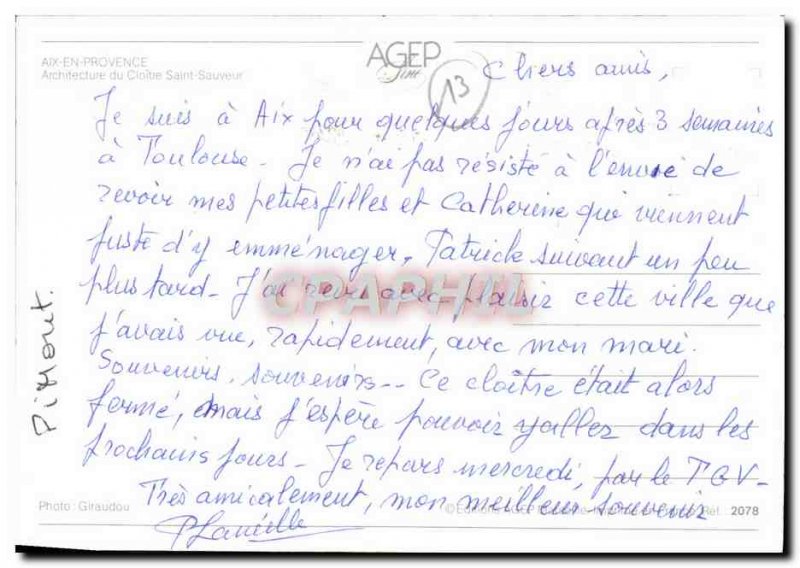 AIX-EN-PROVENCE
Architecture du Cloître Saint-Sauveur
AGEP
13
Chers amis,
Je suis à Aix pour quelques jours après 3 semaines
à Toulouse. Je n'ai pas résisté à l'envie de
revoir mes petites filles et Catherine qui viennent
juste d'y emménager, Patrick suivant un peu
plus tard - J'ai revu avec plaisir cette ville que
CPAPHIL
j'avais vue, rapidement, avec mon mari.
Souvenirs, souvenirs -- Ce cloître était alors
fermé, mais j'espère pouvoir y aller dans les
prochains jours - Je repars mercredi, par le TGV -
Très amicalement, mon meilleur souvenir
Pimont.
Photo : Giraudou
Réf. : 2078